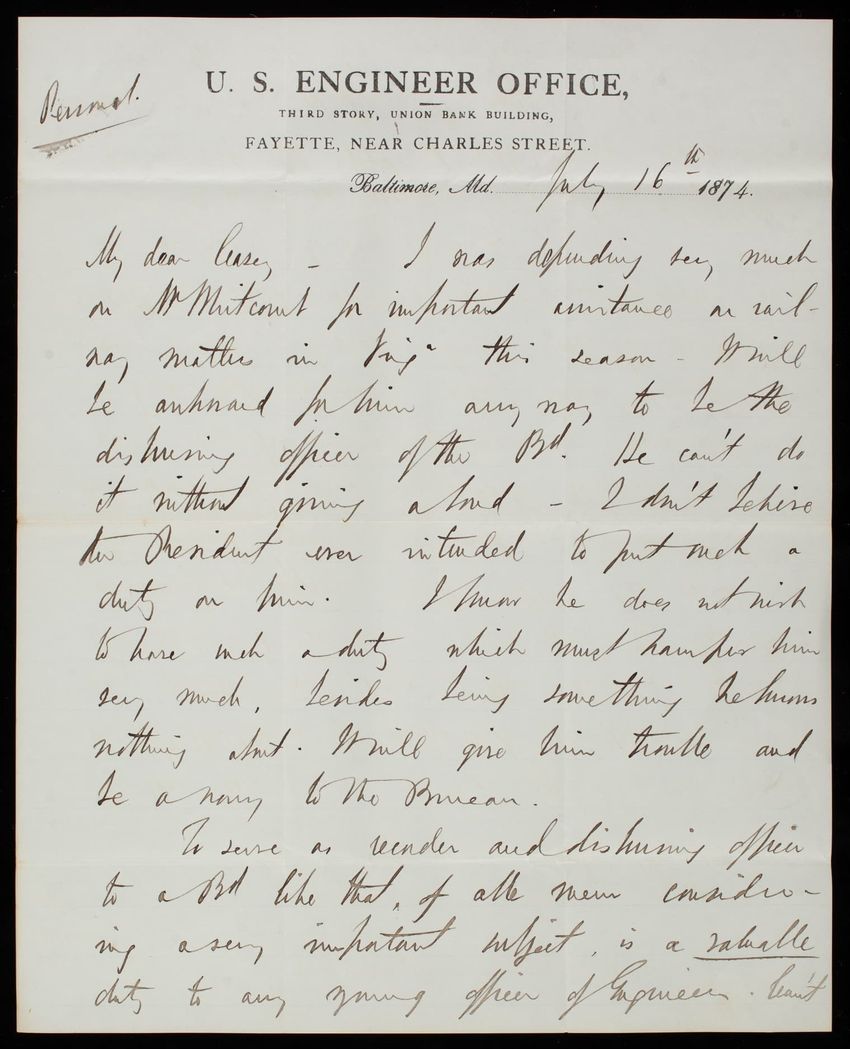 Personal.
U. S. ENGINEER OFFICE,
THIRD STORY, UNION BANK BUILDING,
FAYETTE, NEAR CHARLES STREET.
Baltimore, Md. July 16th 1874.
My dear Casey – I was depending very much
on Mr Whitcomb for important assistance on rail-
way matters in Virga this season – It will
be awkward for him any way to be the
disbursing officer of the Bd. He can't do
it without giving a bond – I don't believe
the President ever intended to put such a
duty on him. I know he does not wish
to have such a duty which must hamper him
very much, besides being something he knows
nothing about. It will give him trouble and
be a to the Bureau.
To serve as recorder and disbursing officer
to a Bd like that, of able men consider-
ing a very important subject, is a valuable
duty to any young officer of Engineers. Can't